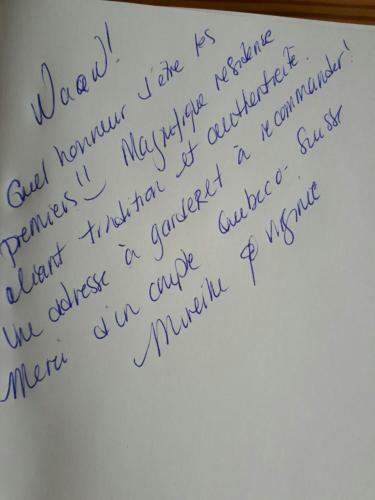 Waaw!
Quel honneur d'être les
premiers!! Magnifique résidence
aliant tradition et authenticité.
Une adresse à garder et à recommander!
Merci d'un couple Québéco-Suisse
Mireille & Virginie